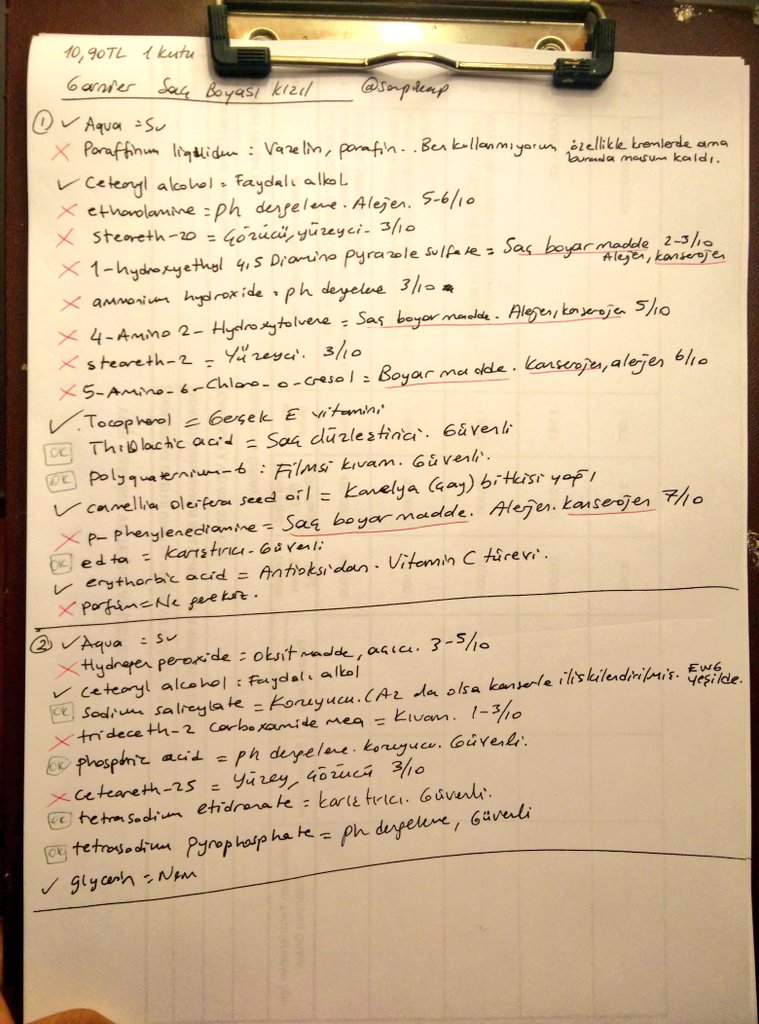 10,90TL 1 kutu
Garnier Saç Boyası Kızıl @sorpikap
① ✓ Aqua = Su
✗ Paraffinum liquidum : Vazelin, parafin.. Ben kullanmıyorum özellikle kremlerde ama burada masum kaldı.
✓ Cetearyl alcohol = Faydalı alkol
✗ ethanolamine = ph dengeleme. Alejen. 5-6/10
✗ steareth-20 = Çözücü, yüzeyci - 3/10
✗ 1-hydroxyethyl 4,5 Diamino pyrazole sulfate = Saç boyar madde 2-3/10 Alejen, kanserojen
✗ ammonium hydroxide = ph dengeleme 3/10
✗ 4-Amino 2-Hydroxytolvene = Saç boyar madde. Alejen, kanserojen 5/10
✗ steareth-2 = Yüzeyci. 3/10
✗ 5-Amino-6-Chloro-o-cresol = Boyar madde. Kanserojen, alerjen 6/10
✓ Tocopherol = Gerçek E vitamini
OK Thiolactic acid = Saç düzleştirici. Güvenli
OK polyquaternium-6 : Filmsi kıvam. Güvenli.
✓ camellia oleifera seed oil = Kamelya (çay) bitkisi yağı
✗ p-phenylenediamine = Saç boyar madde. Alerjen. kanserojen 7/10
OK edta = Karıştırıcı - Güvenli
✓ erythorbic acid = Antioksidan. Vitamin C türevi.
✗ parfüm = Ne gereksiz.
② ✓ Aqua = Su
✗ Hydrogen peroxide = Oksit madde, açıcı. 3-5/10
✓ Cetearyl alcohol : Faydalı alkol
OK sodium salicylate = Koruyucu. (Az da olsa kanserle ilişkilendirilmiş. EWG yeşilde.
✗ trideceth-2 carboxamide mea = Kıvam. 1-3/10
OK phosphoric acid = ph dengeleme. koruyucu. Güvenli.
✗ ceteareth-25 = Yüzey, çözücü 3/10
OK tetrasodium etidronate = karıştırıcı. Güvenli.
OK tetrasodium pyrophosphate = ph dengeleme, Güvenli
✓ glycerin = Nem